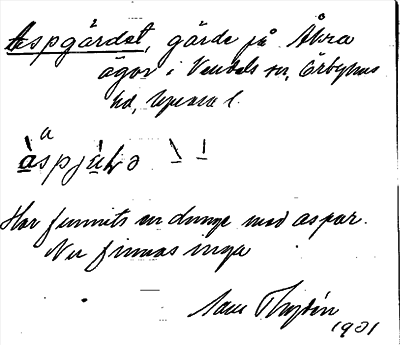 Aspgärdet, gärde på Åbra
ägor i Vendels sn, Örbyhus
hd, Uppsala l.
a
àspjæ̀ḷə
Har funnits en dunge med aspar.
Nu finnas inga
1931